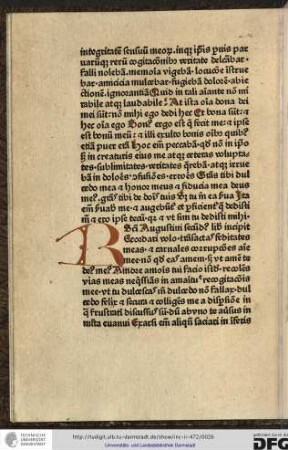 integritatē sensuū meoꝝ. inq̄ ip̄is puis par
uarūq̄ꝫ rerū cogitacōnibꝰ veritate delectabar.
falli nolebā. memoīa vigebā. locucōe īstrue
bar. amicicia mulcebar. fugiebā dolorē. abie
ctionē. ignorantiā Quid in tali aīante nō mi
rabile atqꝫ laudabile. At ista oīa dona dei
mei sūt. nō mihi ego dedi hec Et bona sūt: ⁊
hec oīa ego Bonꝰ ergo est q̄ fecit me: ⁊ ip̄e
est bonū meū: ⁊ illi exulto bonis oībꝰ quibꝰ
etiā puer erā Hoc em̄ peccabā. qđ nō in ip̄o
sꝫ in creaturis eius me atqꝫ ceteras volupta
tes. sublimitates. veritates q̄rebā. atqꝫ irrue
bā in dolores. ꝯfusiōes. errores Grās tibi dul
cedo mea ⁊ honor meus ⁊ fiducia mea deus
meꝰ. grās tibi de donꝭ tuis. Sꝫ tu m̄ ea serua Ita
em̄ ẜuabꝭ me. ⁊ augebūtꝛ ⁊ p̄ficient̄ q̄ dedisti
m̄ ⁊ ero ip̄e tecū. qꝛ ⁊ vt sim tu dedisti mihi.
Bēi Augustini secūdꝰ lib incipit
Recordari volo. trāsactas feditates
meas. ⁊ carnales corrupcōes aīe
mee. nō qđ eas amem. sꝫ vt amē te
deꝰ meꝰ Amore amoris tui facio istđ. recolēs
vias meas neq̄ssimas in amaritudīe recogitacōis
mee. vt tu dulcescas m̄ dulcedo nō fallax. dul
cedo felix ⁊ secura ⁊ colligēs me a disp̄siōe in
q̄ frustati̅ discissus sū. dū ab vno te aūsus in
multa euanui Exarsi em̄ aliqn̄ saciari in īferis
http://tudigit.ulb.tu-darmstadt.de/show/inc-ii-472/0026
Universitäts- und Landesbibliothek Darmstadt
TECHNISCHE UNIVERSITÄT DARMSTADT
DFG